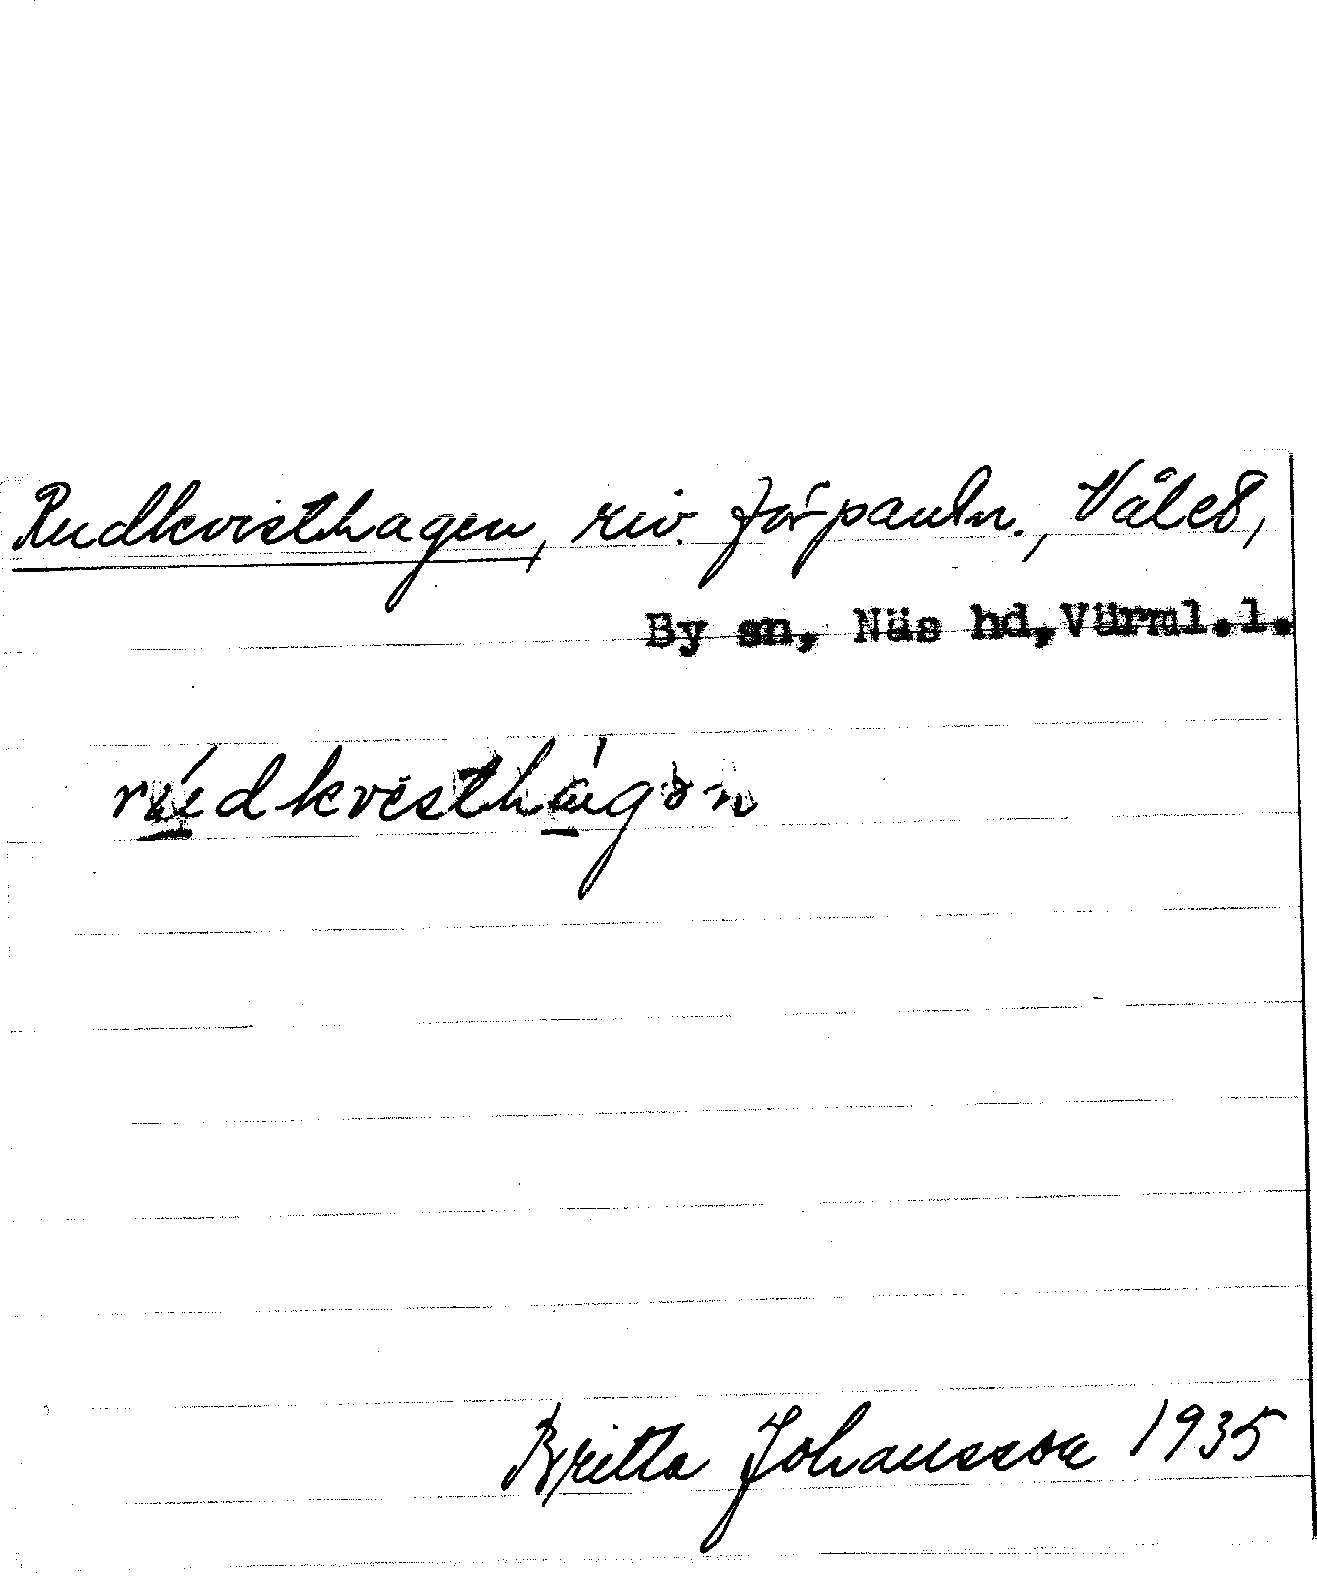 Rudkvisthagen, riv. förpantn., Våle8,
By sn, Näs hd, Värml.l.
rúdkvesthágən
Britta Johansson 1935